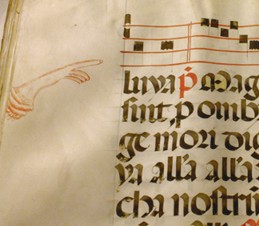 luya p̄ Mag
sint p omb
ge mori dig
ya alla alla
cha nostri